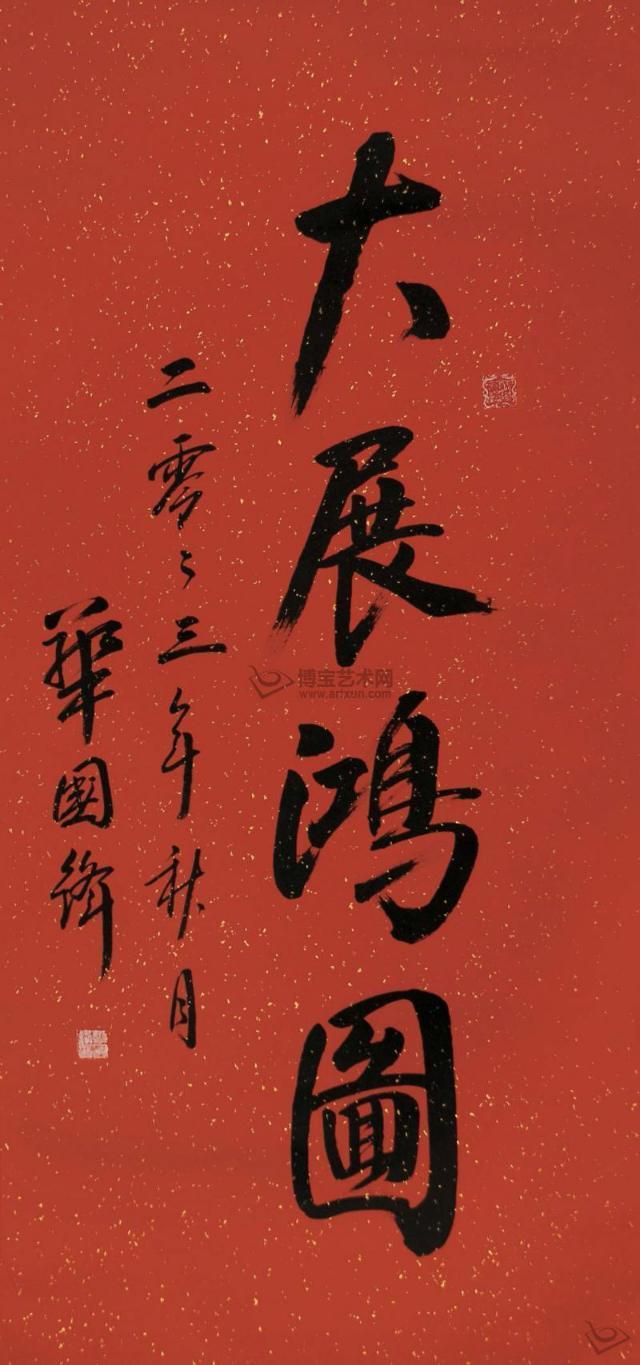 大展鴻圖
二零零三年秋月
華國鋒
博宝艺术网
www.artxun.com